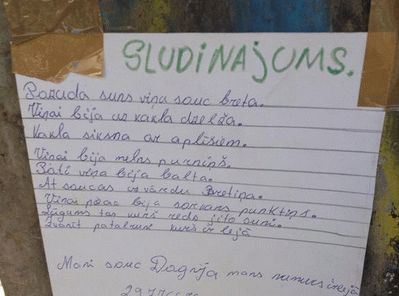 SLUDINAJUMS.
Pazuda suns viņu sauc breta.
Viņai bija uz kakla dzelža.
Kakla siksna ar aplišiem.
Viņai bija melns purniņš.
Pati viņa bija balta.
At saucas uz vārdu Bretiņa.
Viņai pēac bija sarkans punktiņš.
Lūgums tas kurš redz šito suni.
Zvanīt pa talruni kurš ir lejā
Mani sauc Dagnija mans numurs